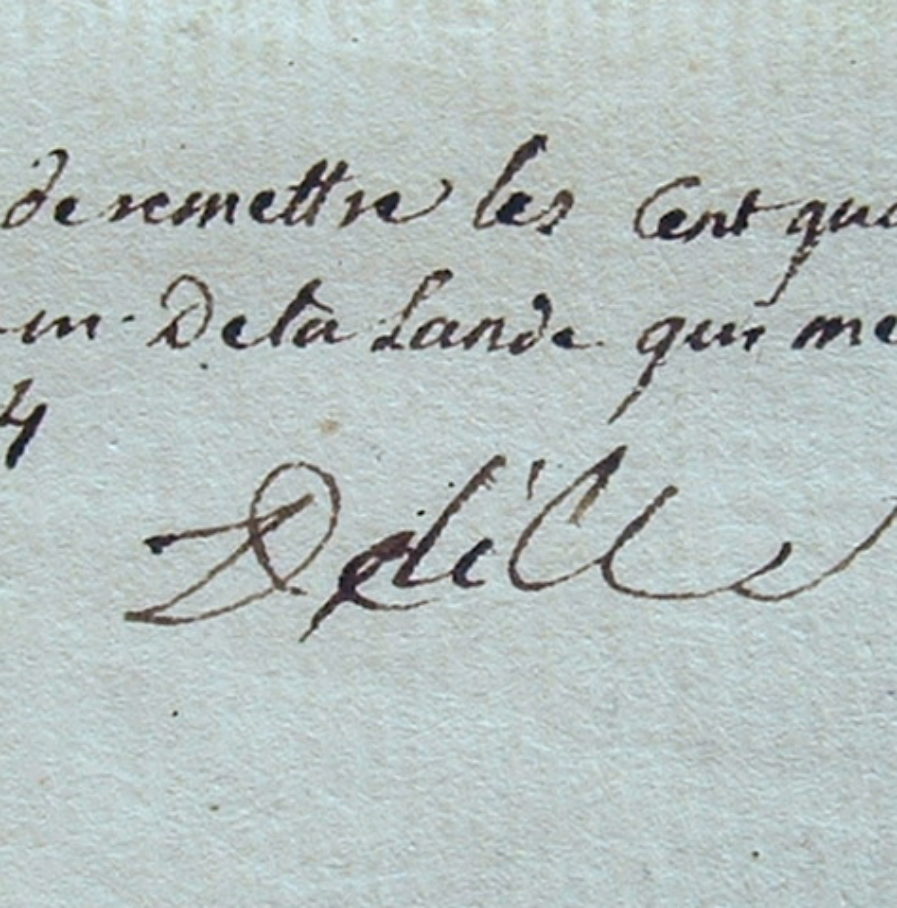 de remettre les Cent qua
m. Dela Lande qui me
4
Delille